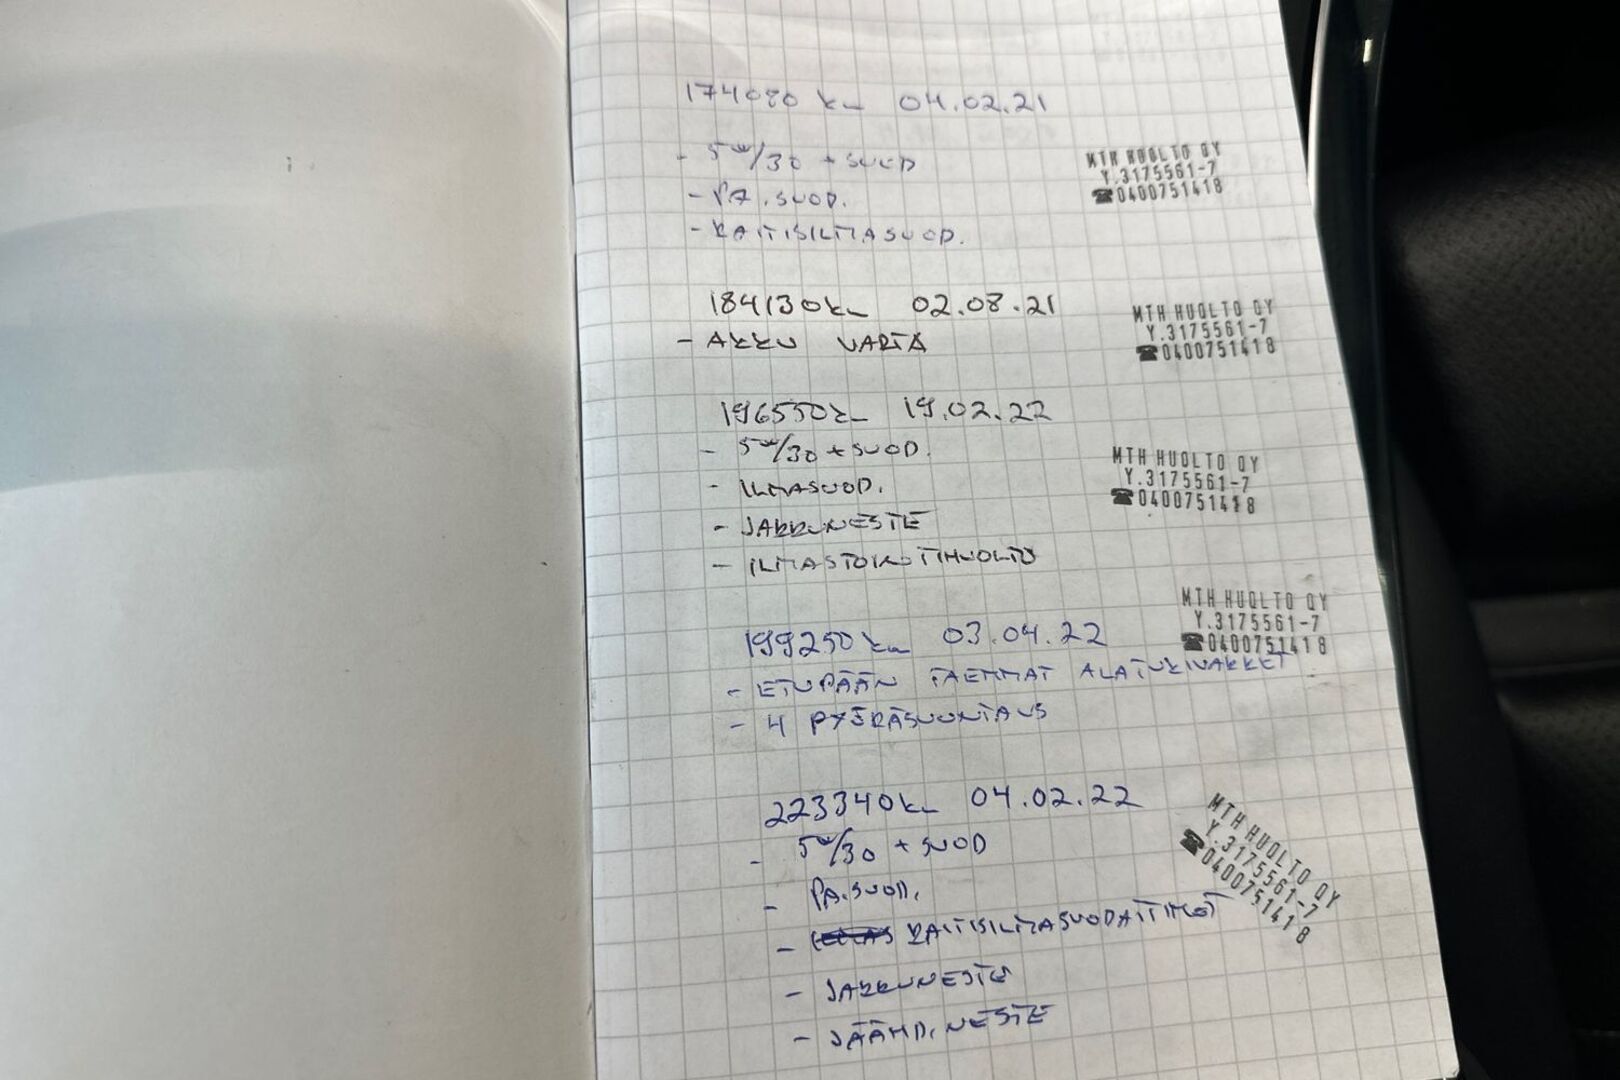 174080 km 04.02.21
- 5w/30 + SUOD
- PA.SUOD.
- RAITISILMASUOD.
MTH HUOLTO OY
Y.3175561-7
☎0400751418
184130km 02.08.21
- AKKU VARTA
MTH HUOLTO OY
Y.3175561-7
☎0400751418
196550km 19.02.22
- 5w/30 + SUOD.
- ILMASUOD.
- JARRUNESTE
- ILMASTOINTIHUOLTO
MTH HUOLTO OY
Y.3175561-7
☎0400751418
199250 km 03.04.22
- ETUPÄÄN TAEMMAT ALATUKIVARRET
- 4 PYÖRÄSUUNTAUS
MTH HUOLTO OY
Y.3175561-7
☎0400751418
223340km 04.02.22
- 5w/30 + SUOD
- PA.SUOD.
- RAITISILMASUODATTIMET
- JARRUNESTE
- JÄÄHD. NESTE
MTH HUOLTO OY
Y.3175561-7
☎0400751418